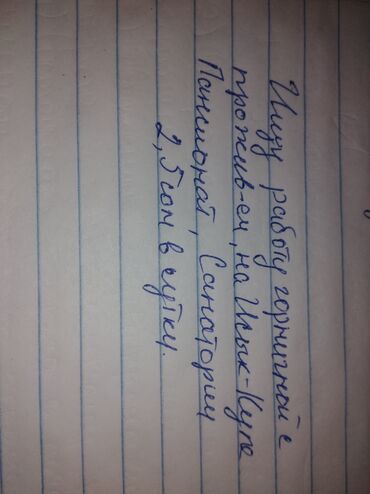 Ищу работу горничной с
прожив-ем, на Иссык-Куле
Пансионат, Санатории
2,5 сом в сутки.